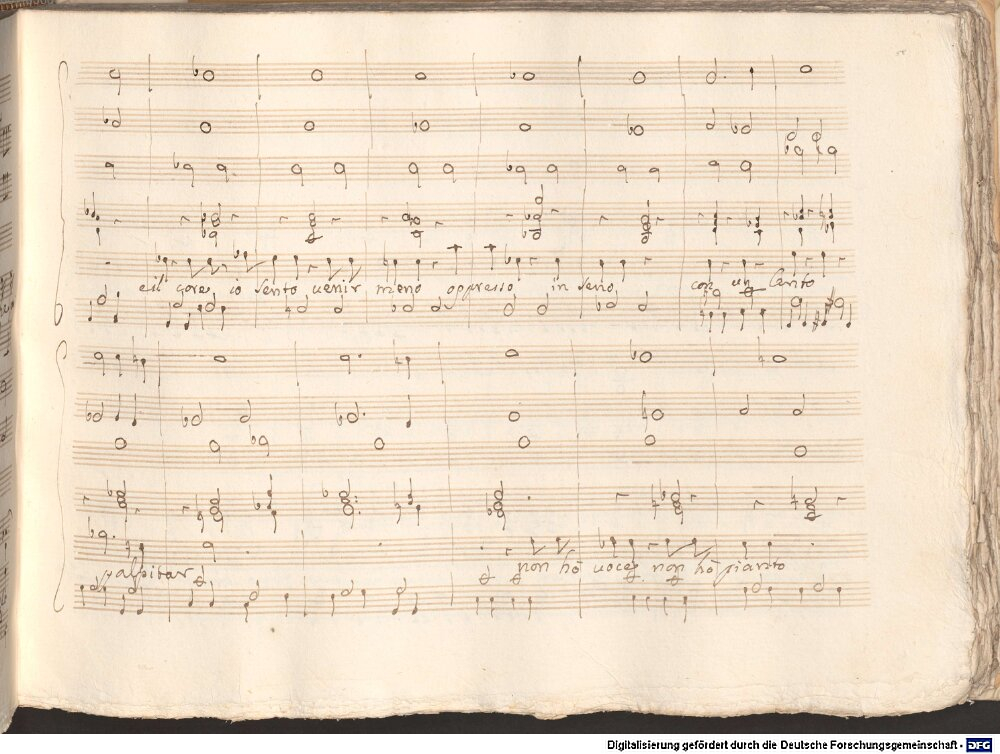 e il core io sento venir meno oppresso in seno con un lento
palpitar non hò voce non hò pianto
Digitalisierung gefördert durch die Deutsche Forschungsgemeinschaft - DFG